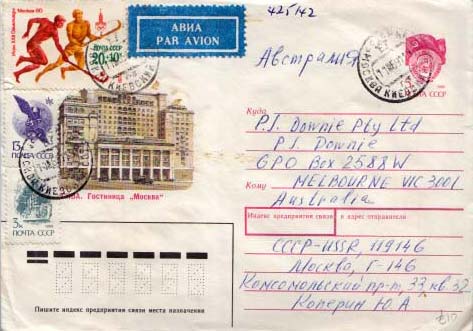 425/42
Москва-80
20+10к
ПОЧТА СССР
АВИА
PAR AVION
Австралия
МОСКВА КИЕВСКИЙ
ПОЧТА СССР
13к
ПОЧТА СССР
МОСКВА КИЕВСКИЙ
3к
ПОЧТА СССР
ВА. Гостиница „Москва"
Куда
P.J. Downie Pty Ltd
P.J. Downie
GPO Box 2588W
Кому
MELBOURNE VIC 3001
Australia
Индекс предприятия связи и адрес отправителя
СССР-USSR, 119146
Москва, Г-146
Комсомольский пр-т, 33 кв 32
Коперин Ю.А
Пишите индекс предприятия связи места назначения